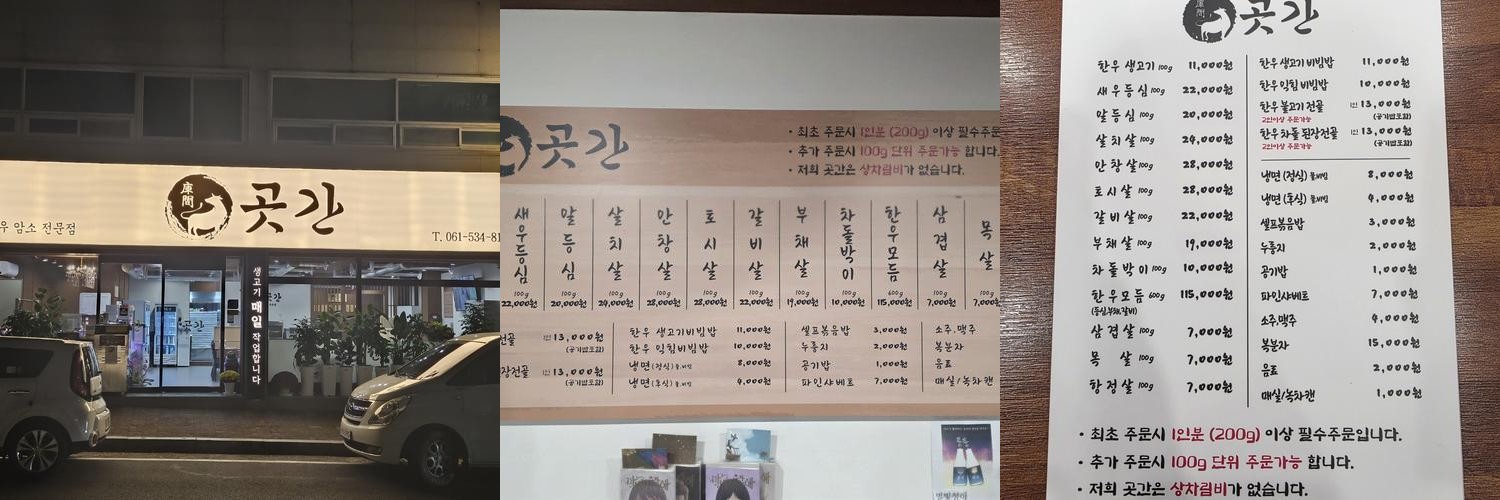 庫間
곳간
우 암소 전문점
T. 061-534-81
생고기 매일 작업합니다
곳간
곳간
• 최초 주문시 1인분 (200g) 이상 필수주문
• 추가 주문시 100g 단위 주문가능 합니다.
• 저희 곳간은 상차림비가 없습니다.
새우등심 100g 22,000원
알등심 100g 20,000원
살치살 100g 24,000원
안창살 100g 28,000원
토시살 100g 28,000원
갈비살 100g 22,000원
부채살 100g 19,000원
차돌박이 100g 10,000원
한우모듬 600g 115,000원
삼겹살 100g 7,000원
목살 100g 7,000원
전골 1인 13,000원
(공기밥포함)
장전골 1인 13,000원
(공기밥포함)
한우 생고기비빔밥 11,000원
한우 익힘비빔밥 10,000원
냉면(정식) 물,비빔 8,000원
냉면(후식) 물,비빔 4,000원
셀프볶음밥 3,000원
누룽지 2,000원
공기밥 1,000원
파인샤베트 7,000원
소주,맥주
복분자
음료
매실/녹차캔
庫間
곳간
한우 생고기 100g 11,000원
새우등심 100g 22,000원
알등심 100g 20,000원
살치살 100g 24,000원
안창살 100g 28,000원
토시살 100g 28,000원
갈비살 100g 22,000원
부채살 100g 19,000원
차돌박이 100g 10,000원
한우모듬 600g 115,000원
(등심,부채,갈비)
삼겹살 100g 7,000원
목살 100g 7,000원
항정살 100g 7,000원
한우 생고기 비빔밥 11,000원
한우 익힘 비빔밥 10,000원
한우 불고기 전골 1인 13,000원
2인이상 주문가능 (공기밥포함)
한우차돌 된장전골 1인 13,000원
2인이상 주문가능 (공기밥포함)
냉면(정식) 물,비빔 8,000원
냉면(후식) 물,비빔 4,000원
셀프볶음밥 3,000원
누룽지 2,000원
공기밥 1,000원
파인샤베트 7,000원
소주,맥주 4,000원
복분자 15,000원
음료 2,000원
매실/녹차캔 1,000원
• 최초 주문시 1인분 (200g) 이상 필수주문입니다.
• 추가 주문시 100g 단위 주문가능 합니다.
• 저희 곳간은 상차림비가 없습니다.